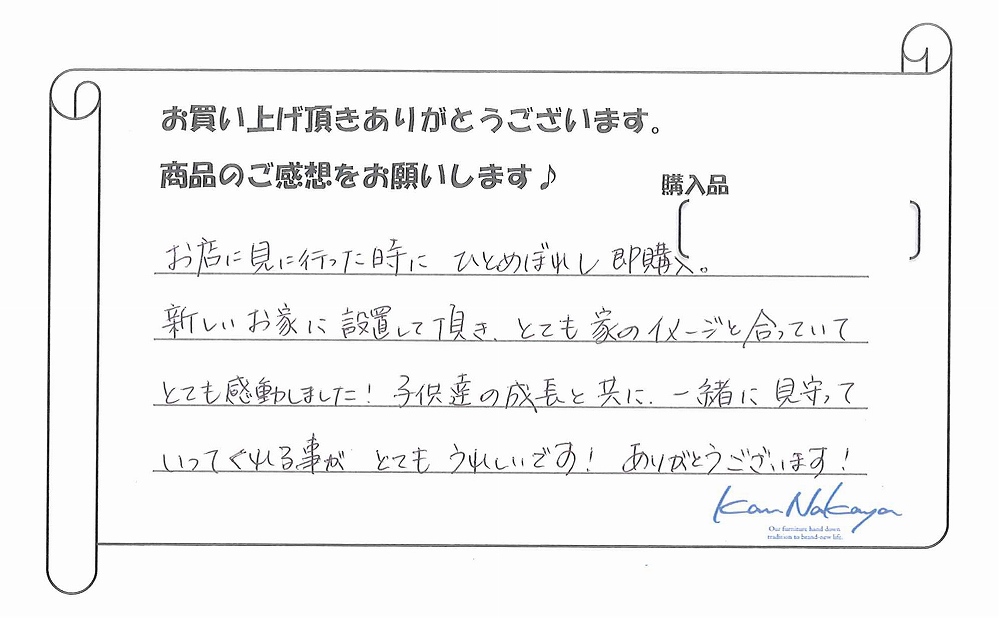 お買い上げ頂きありがとうございます。
商品のご感想をお願いします♪
購入品
お店に見に行った時に ひとめぼれし 即購入。
新しいお家に設置して頂き、とても家のイメージと合っていて
とても感動しました!子供達の成長と共に、一緒に見守って
いってくれる事が とても うれしいです! ありがとうございます!
Kan Nakaya
Our furniture hand down
tradition to brand-new life.